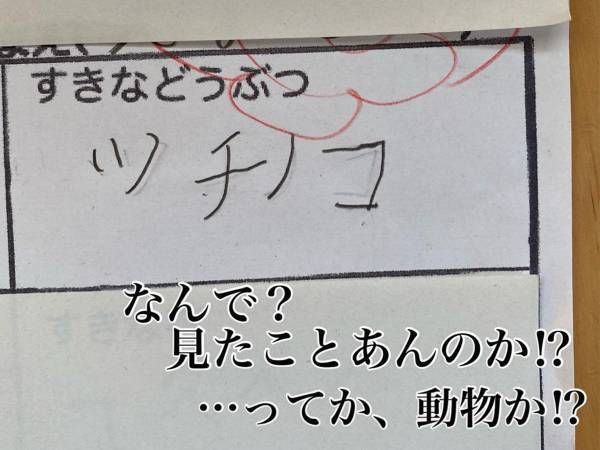 すきなどうぶつ
ツチノコ
なんで？
見たことあんのか!?
…ってか、動物か!?